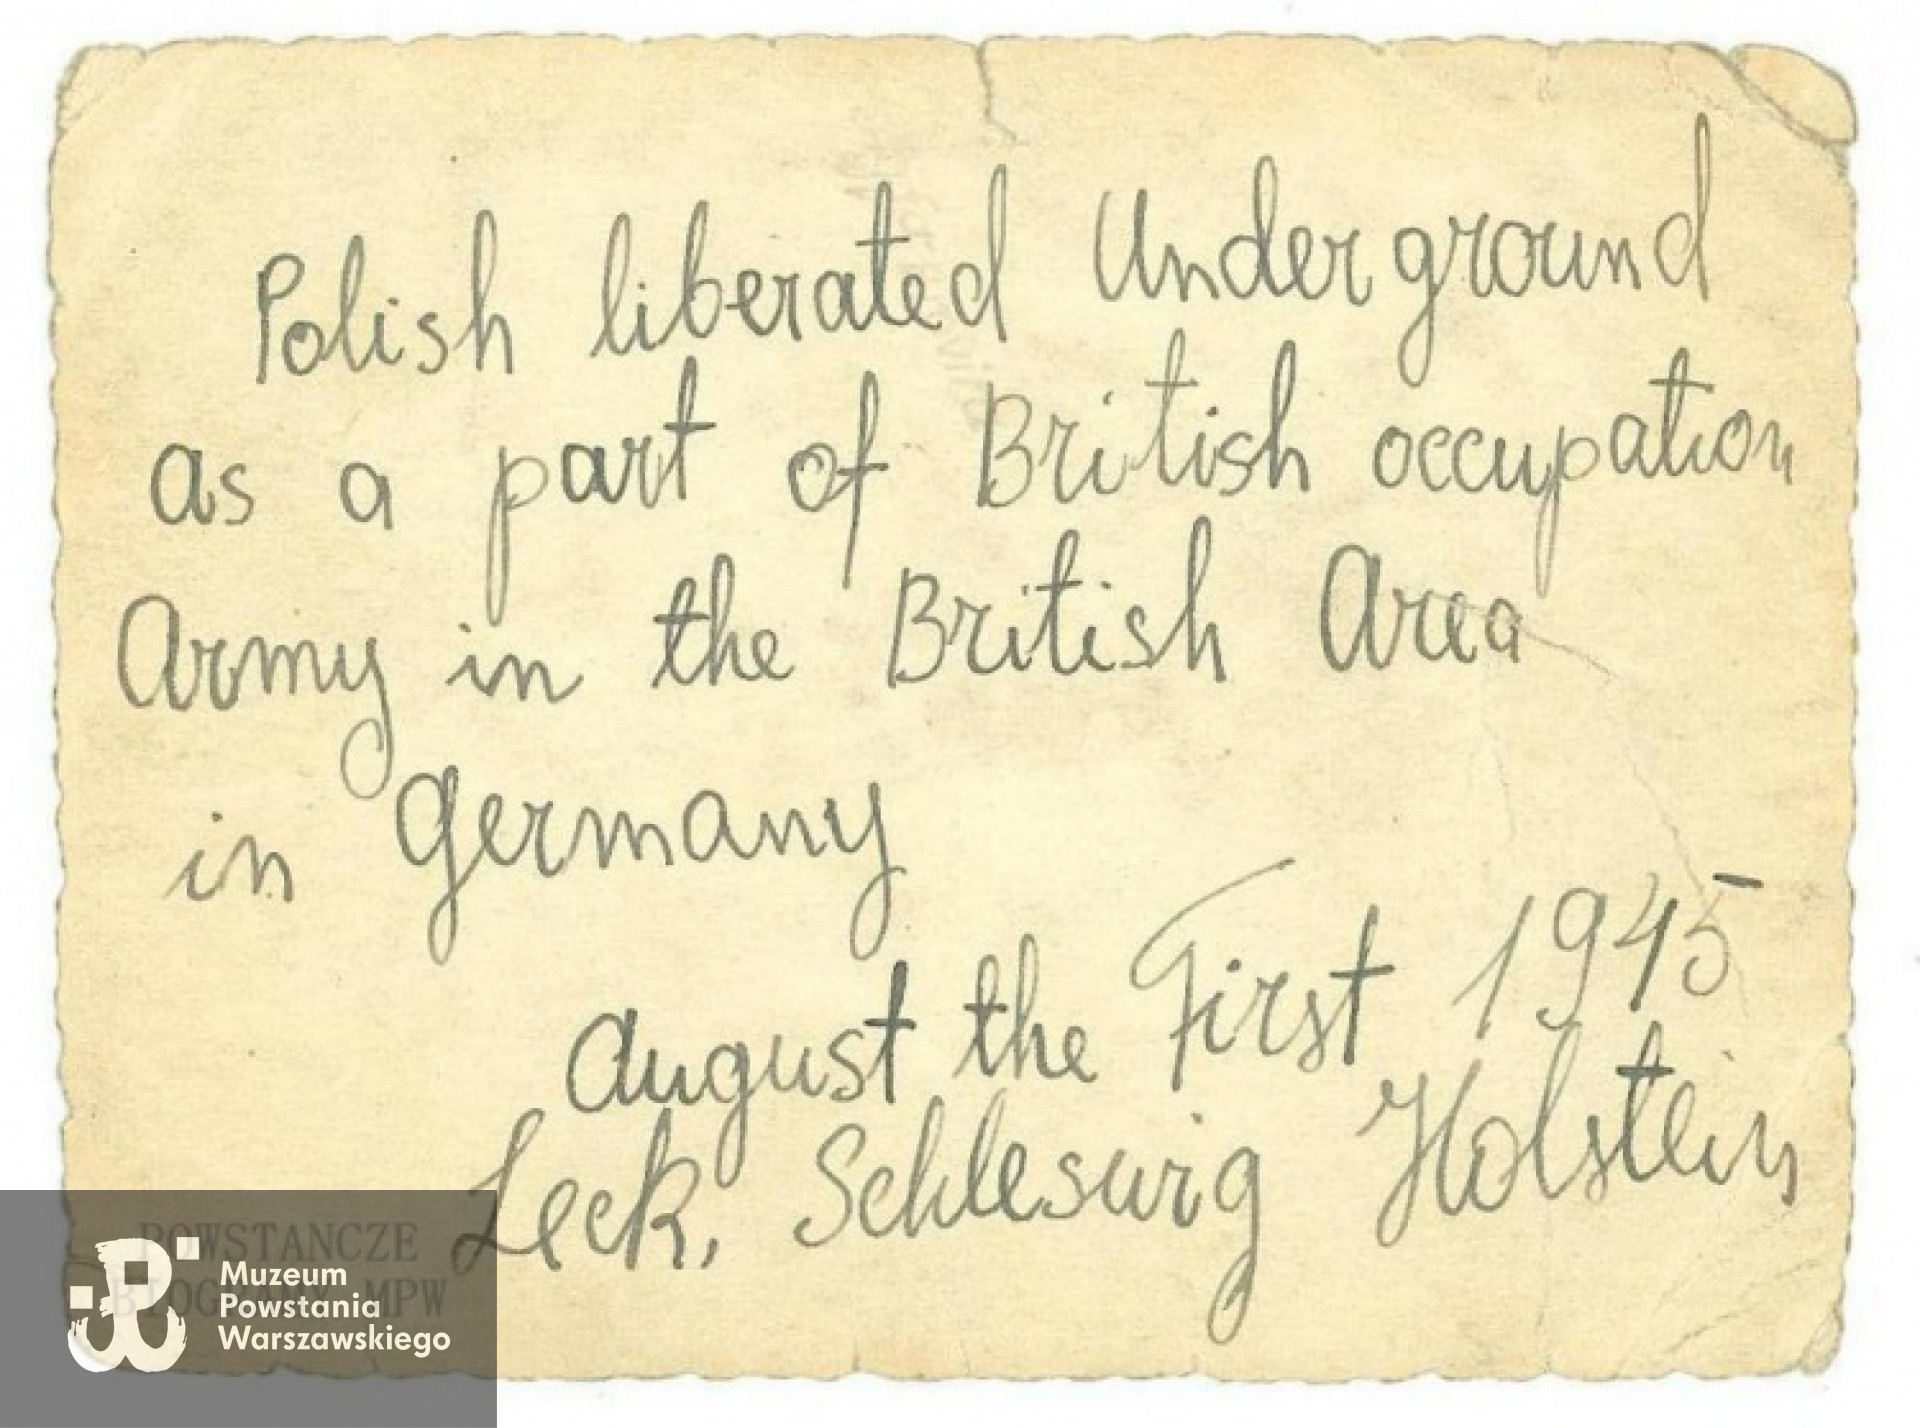 Polish liberated Underground
as a part of British occupation
Army in the British Area
in Germany
August the First 1945
Leck, Schleswig Holstein
POWSTAŃCZE
BIOGRAMY MPW
Muzeum
Powstania
Warszawskiego